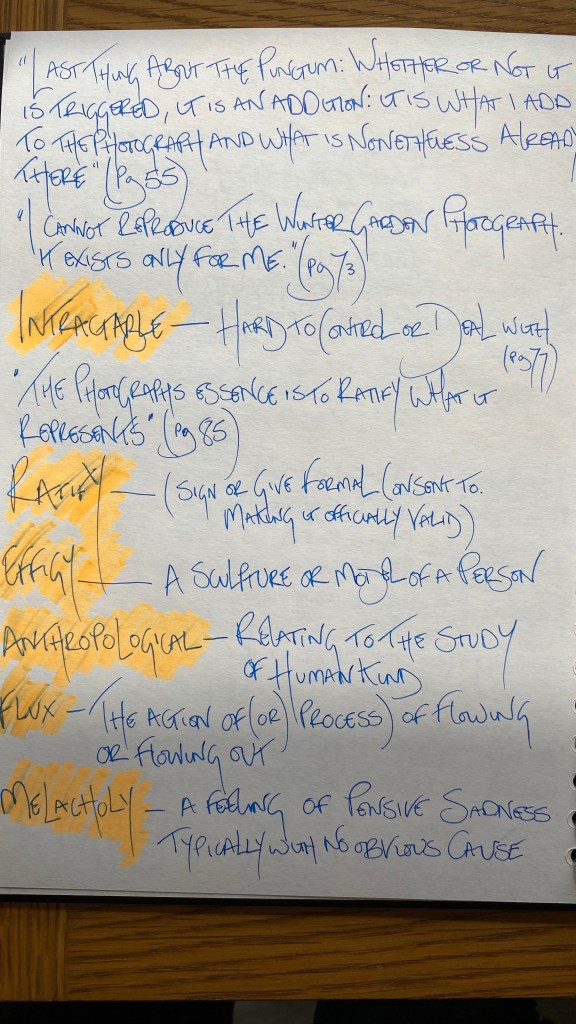 "LAST THING ABOUT THE PUNCTUM: WHETHER OR NOT IT
IS TRIGGERED, IT IS AN ADDITION: IT IS WHAT I ADD
TO THE PHOTOGRAPH AND WHAT IS NONETHELESS ALREADY
THERE" (Pg 55)
"I CANNOT REPRODUCE THE WINTER GARDEN PHOTOGRAPH.
IT EXISTS ONLY FOR ME." (pg 73)
INTRACTABLE — HARD TO CONTROL OR DEAL WITH
(pg 77)
"THE PHOTOGRAPHS ESSENCE IS TO RATIFY WHAT IT
REPRESENTS" (pg 85)
RATIFY — (SIGN OR GIVE FORMAL CONSENT TO.
MAKING IT OFFICIALLY VALID)
EFFIGY — A SCULPTURE OR MODEL OF A PERSON
ANTHROPOLOGICAL — RELATING TO THE STUDY
OF HUMAN KIND
FLUX — THE ACTION OF (OR) PROCESS) OF FLOWING
OR FLOWING OUT
MELACHOLY — A FEELING OF PENSIVE SADNESS
TYPICALLY WITH NO OBVIOUS CAUSE